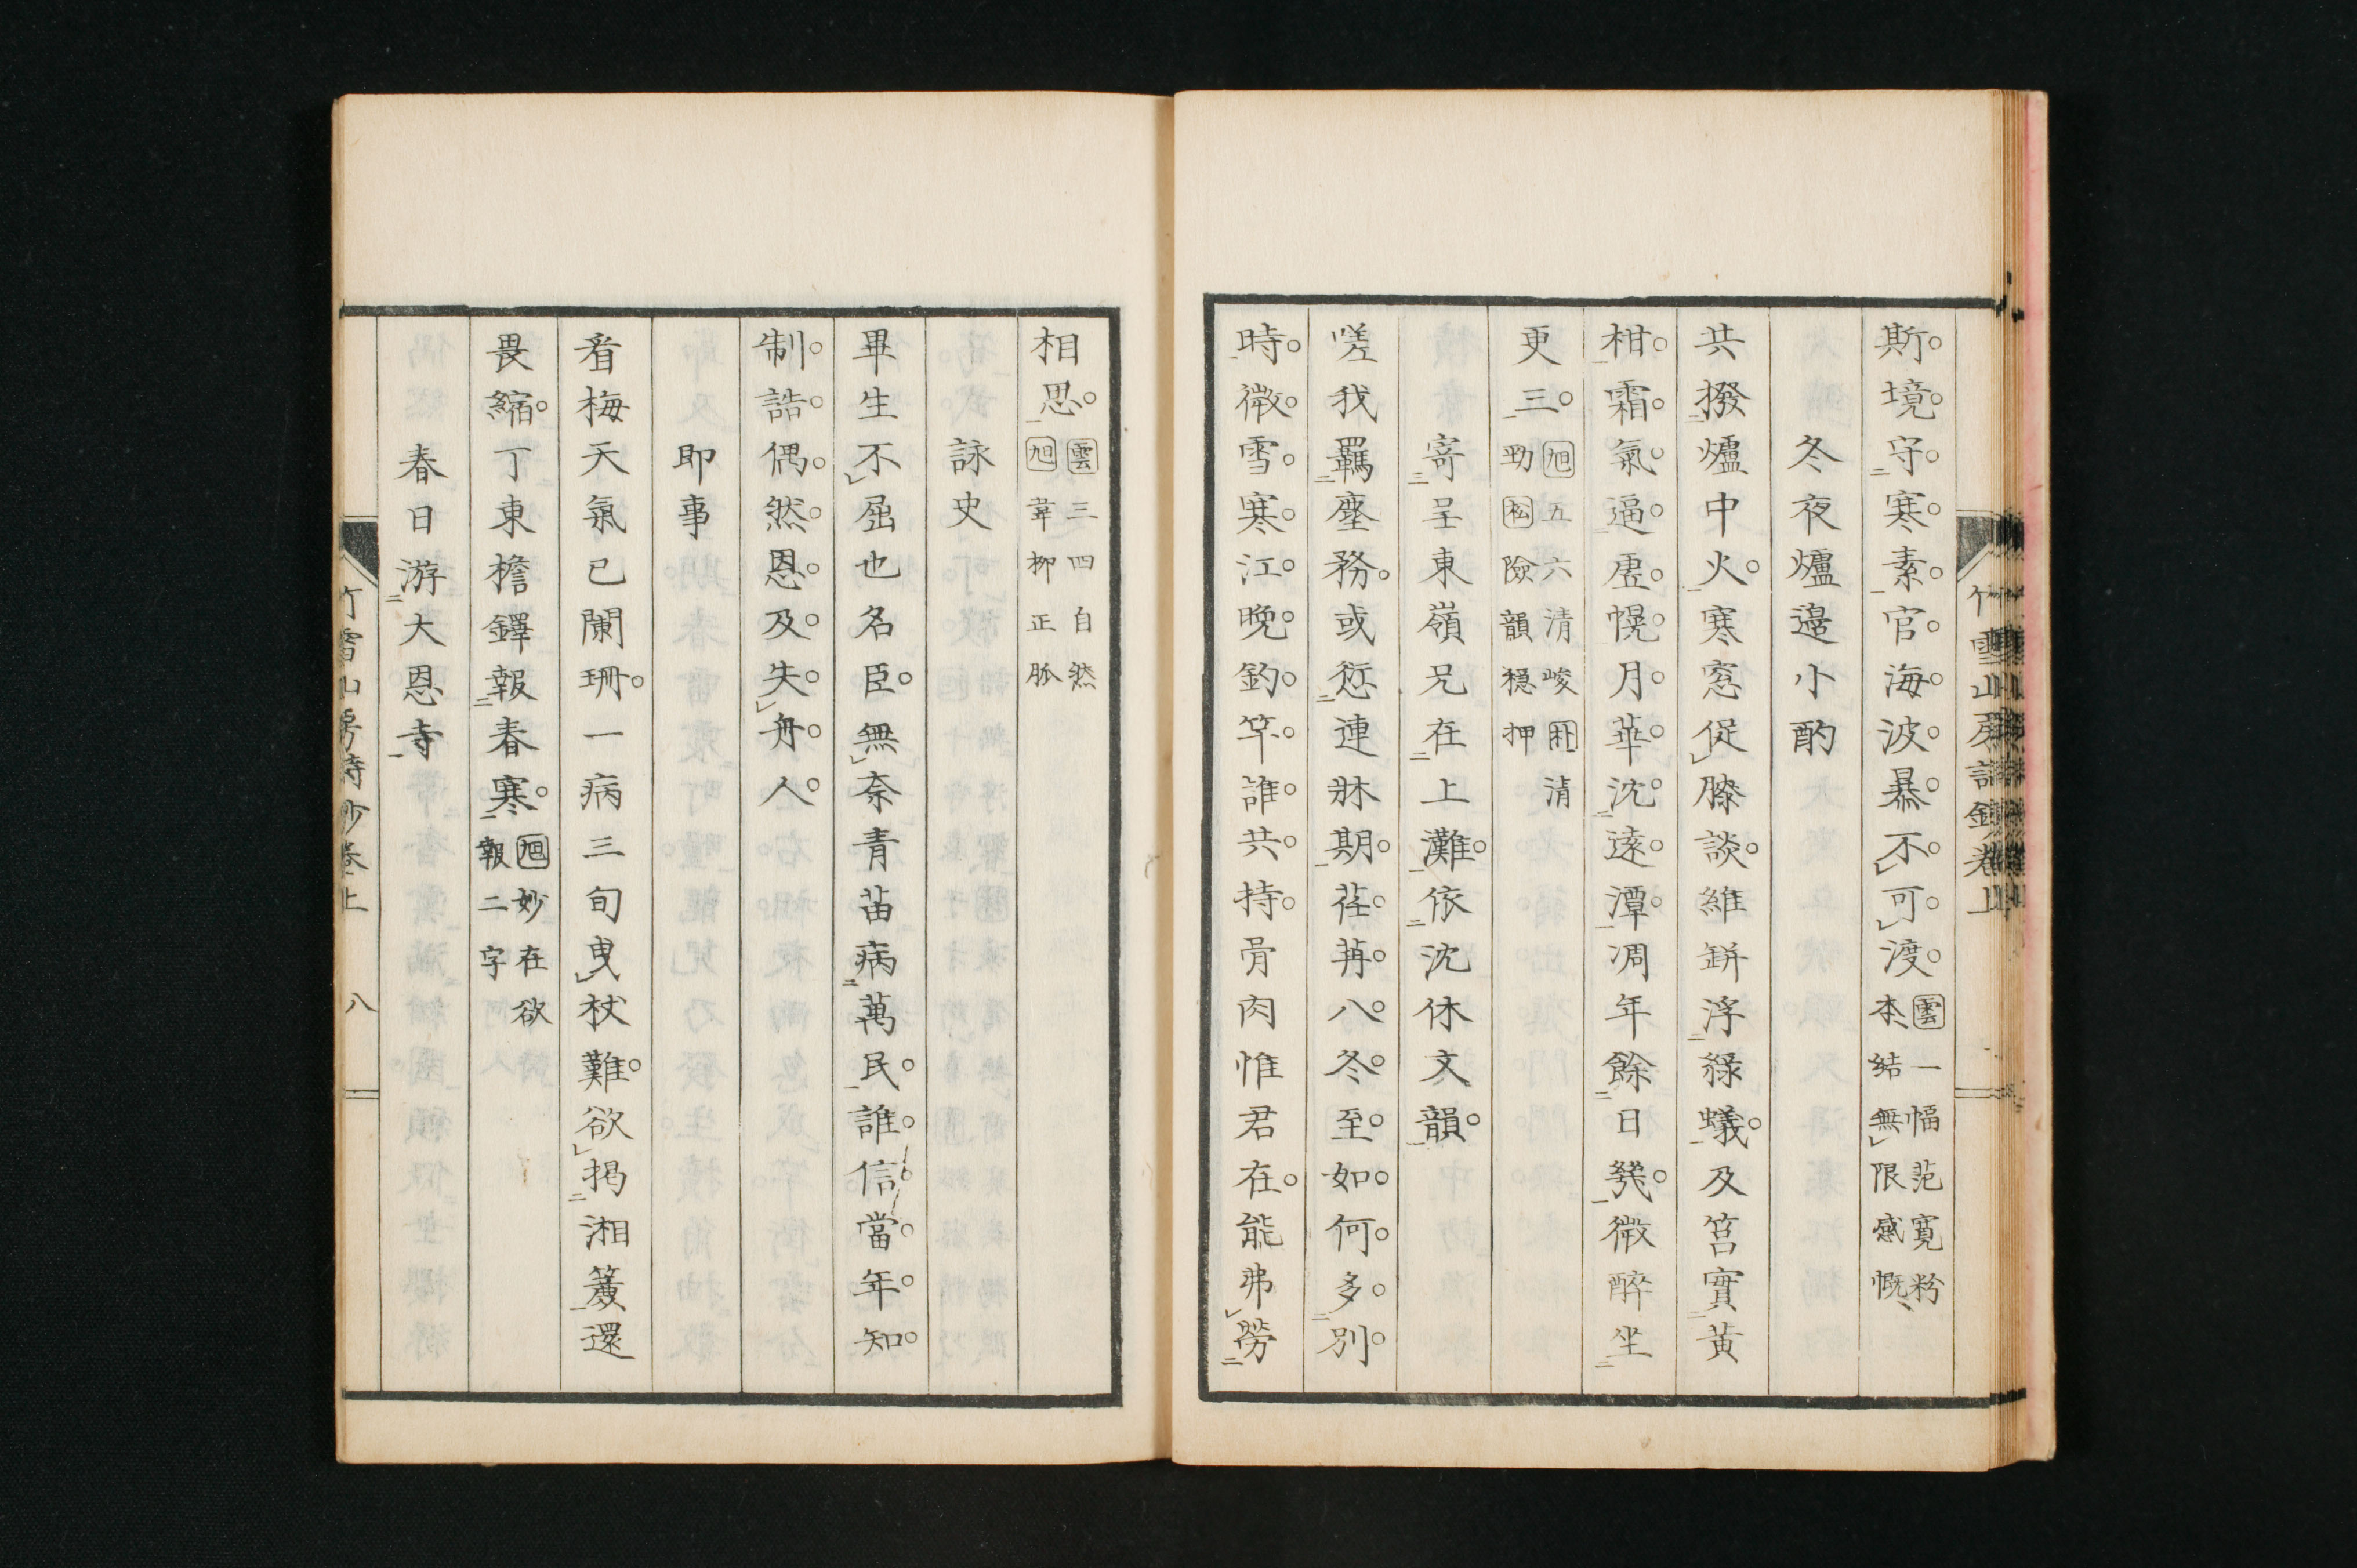 斯境守寒素官海波暴不可渡 雲一幅范寬粉
本結無限感慨
冬夜爐邊小酌
共撥爐中火寒窓促膝談維缾浮綠蟻及筥實黃
柑霜氣逼虛幌月華沈遠潭凋年餘日幾微醉坐
更三 旭五六清峻 清
勁松險韻穩押
寄呈東嶺兄在上灘依沈休文韻
嗟我羈塵務或愆連牀期荏苒八冬至如何多別
時微雪寒江晚釣竿誰共持骨肉惟君在能弗勞
竹雪山房詩鈔卷上
相思 雲三四自然
旭韋柳正脈
詠史
畢生不屈也名臣無奈青苗病萬民誰信當年知
制誥偶然恩及失舟人
即事
看梅天氣已闌珊一病三旬曳杖難欲揭湘簾還
畏縮丁東檐鐸報春寒 旭妙在欲
報二字
春日游大恩寺
竹雪山房詩鈔卷上 八